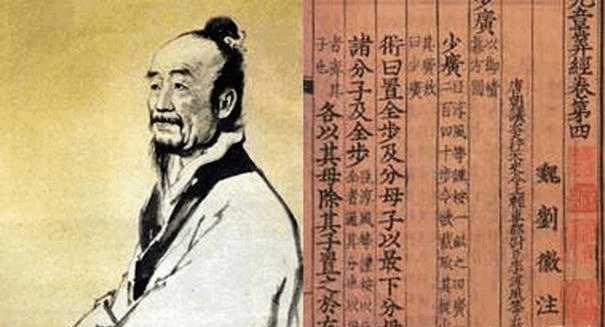 九章筭經卷第四
魏劉徽注
唐朝議大夫行太史令上輕車都尉臣李淳風等
少廣以御積冪方圓
少廣臣淳風等謹按一畝之田廣
二百四十步今欲截取其從
其廣故
曰少廣
術曰置全步及分母子以最下分母
諸分子及全步臣淳風等謹按以
全者通其分也以
者齊其
子也
各以其母除其子置之於左